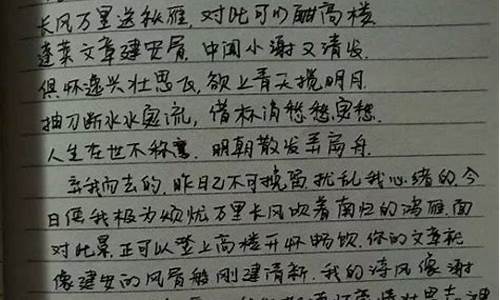 长风万里送秋雁,对此可以酣高楼.
蓬莱文章建安骨.中间小谢又清发.
俱怀逸兴壮思飞,欲上青天揽明月.
抽刀断水水更流,借杯消愁愁更愁.
人生在世不称意.明朝散发弄扁舟.
弃我而去的,昨日已不可挽留.扰乱我心绪的.今
日使我极为烦忧万里长风吹着南归的鸿雁.面
对此景正可以登上高楼开怀畅饮.你的文章就
像建安的风骨般刚建清新.我的诗风像谢